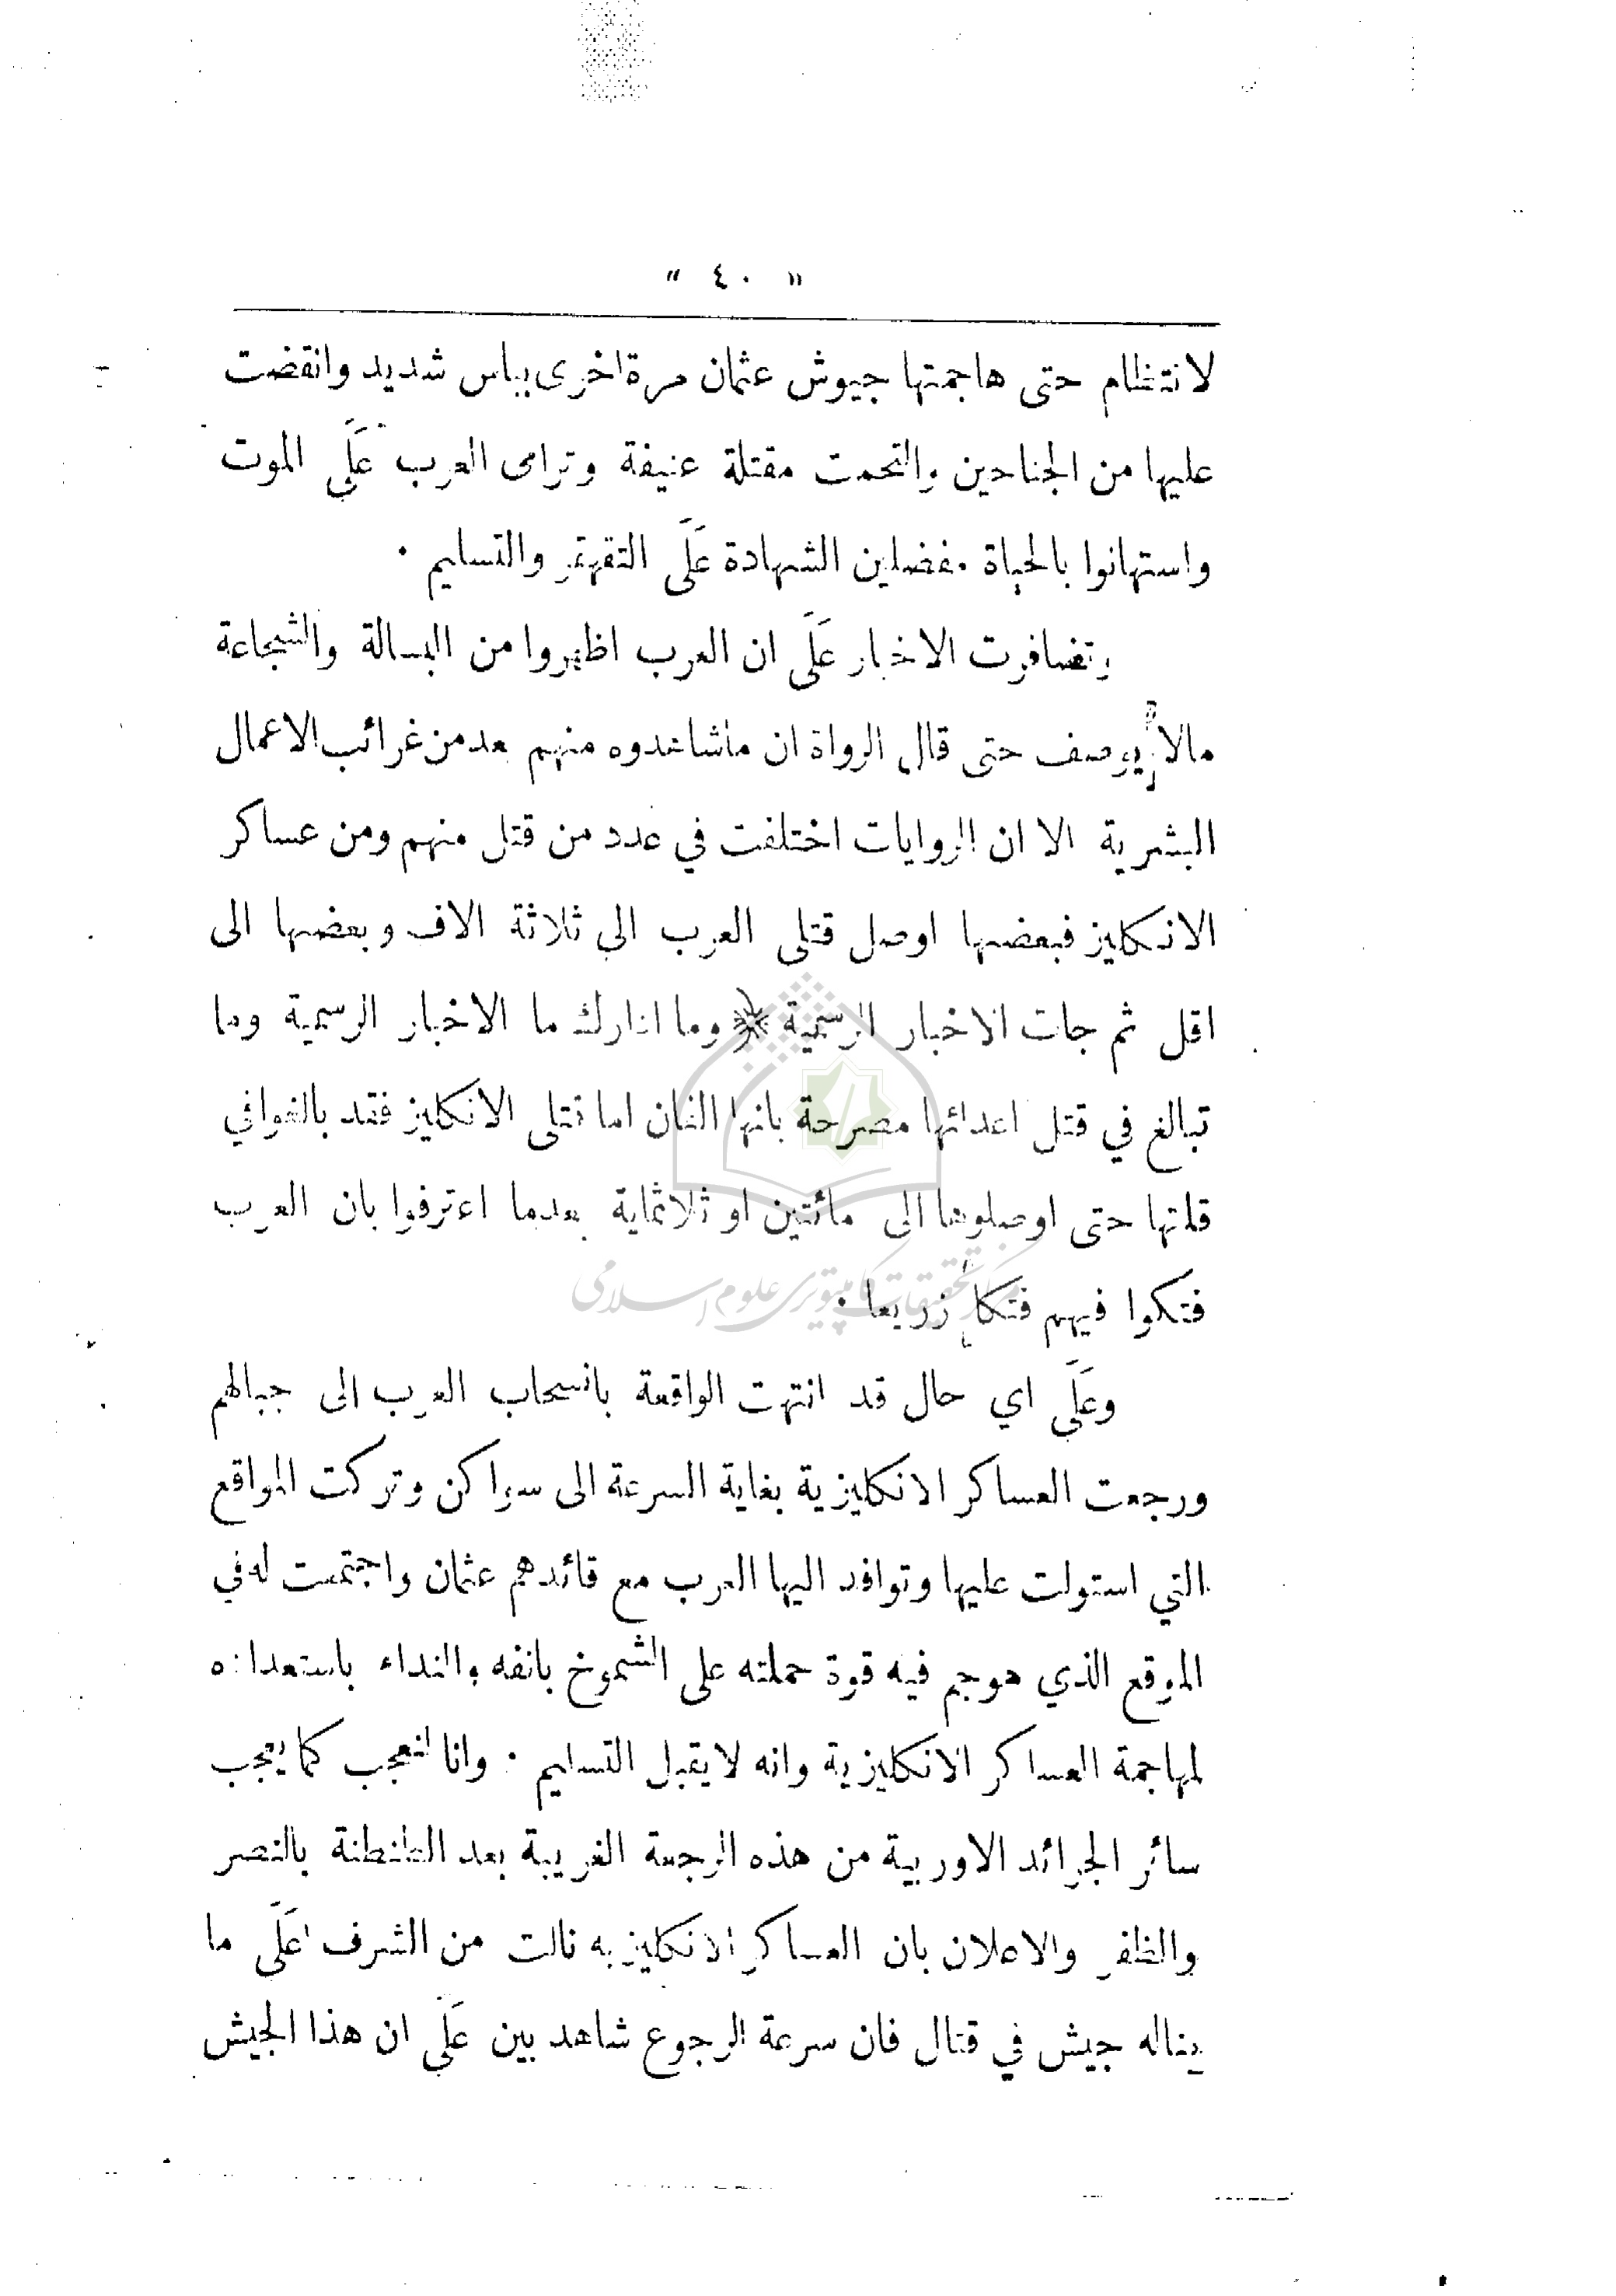 « ٤٠ »
لانتظام حتى هاجمتها جيوش عثمان مرة اخرى بباس شديد وانقضت
عليها من الجناحين والتحمت مقتلة عنيفة وترامى العرب عَلَى الموت
واستهانوا بالحياة مفضلين الشهادة عَلَى التقهقر والتسليم .
وتضافرت الاخبار عَلَى ان العرب اظهروا من البسالة والشجاعة
مالا يوصف حتى قال الرواة ان ماشاهدوه منهم يعد من غرائب الاعمال
البشرية الا ان الروايات اختلفت في عدد من قتل منهم ومن عساكر
الانكليز فبعضها اوصل قتلى العرب الى ثلاثة الاف وبعضها الى
اقل ثم جات الاخبار الرسمية * وما ادراك ما الاخبار الرسمية وما
تبالغ في قتل اعدائها مصرحة بانها الفان اما قتلى الانكليز فقد بالغوا في
قلتها حتى اوصلوها الى مائتين او ثلاثماية بعدما اعترفوا بان العرب
فتكوا فيهم فتكاً زريعا .
مركز تحقيقات كامپيوترى علوم اسلامى
وعَلَى اي حال قد انتهت الواقعة بانسحاب العرب الى جبالهم
ورجعت العساكر الانكليزية بغاية السرعة الى سواكن وتركت المواقع
التي استولت عليها وتوافد اليها العرب مع قائدهم عثمان واجتمعت له في
الموقع الذي هوجم فيه قوة حملته على الشموخ بانفه والنداء باستعداده
لمهاجمة العساكر الانكليزية وانه لايقبل التسليم . وانا لنعجب كما يعجب
سائر الجرائد الاوربية من هذه الرجعة الغريبة بعد الطنطنة بالنصر
والظفر والاعلان بان العساكر الانكليزيه نالت من الشرف اعَلَى ما
يناله جيش في قتال فان سرعة الرجوع شاهد بين عَلَى ان هذا الجيش